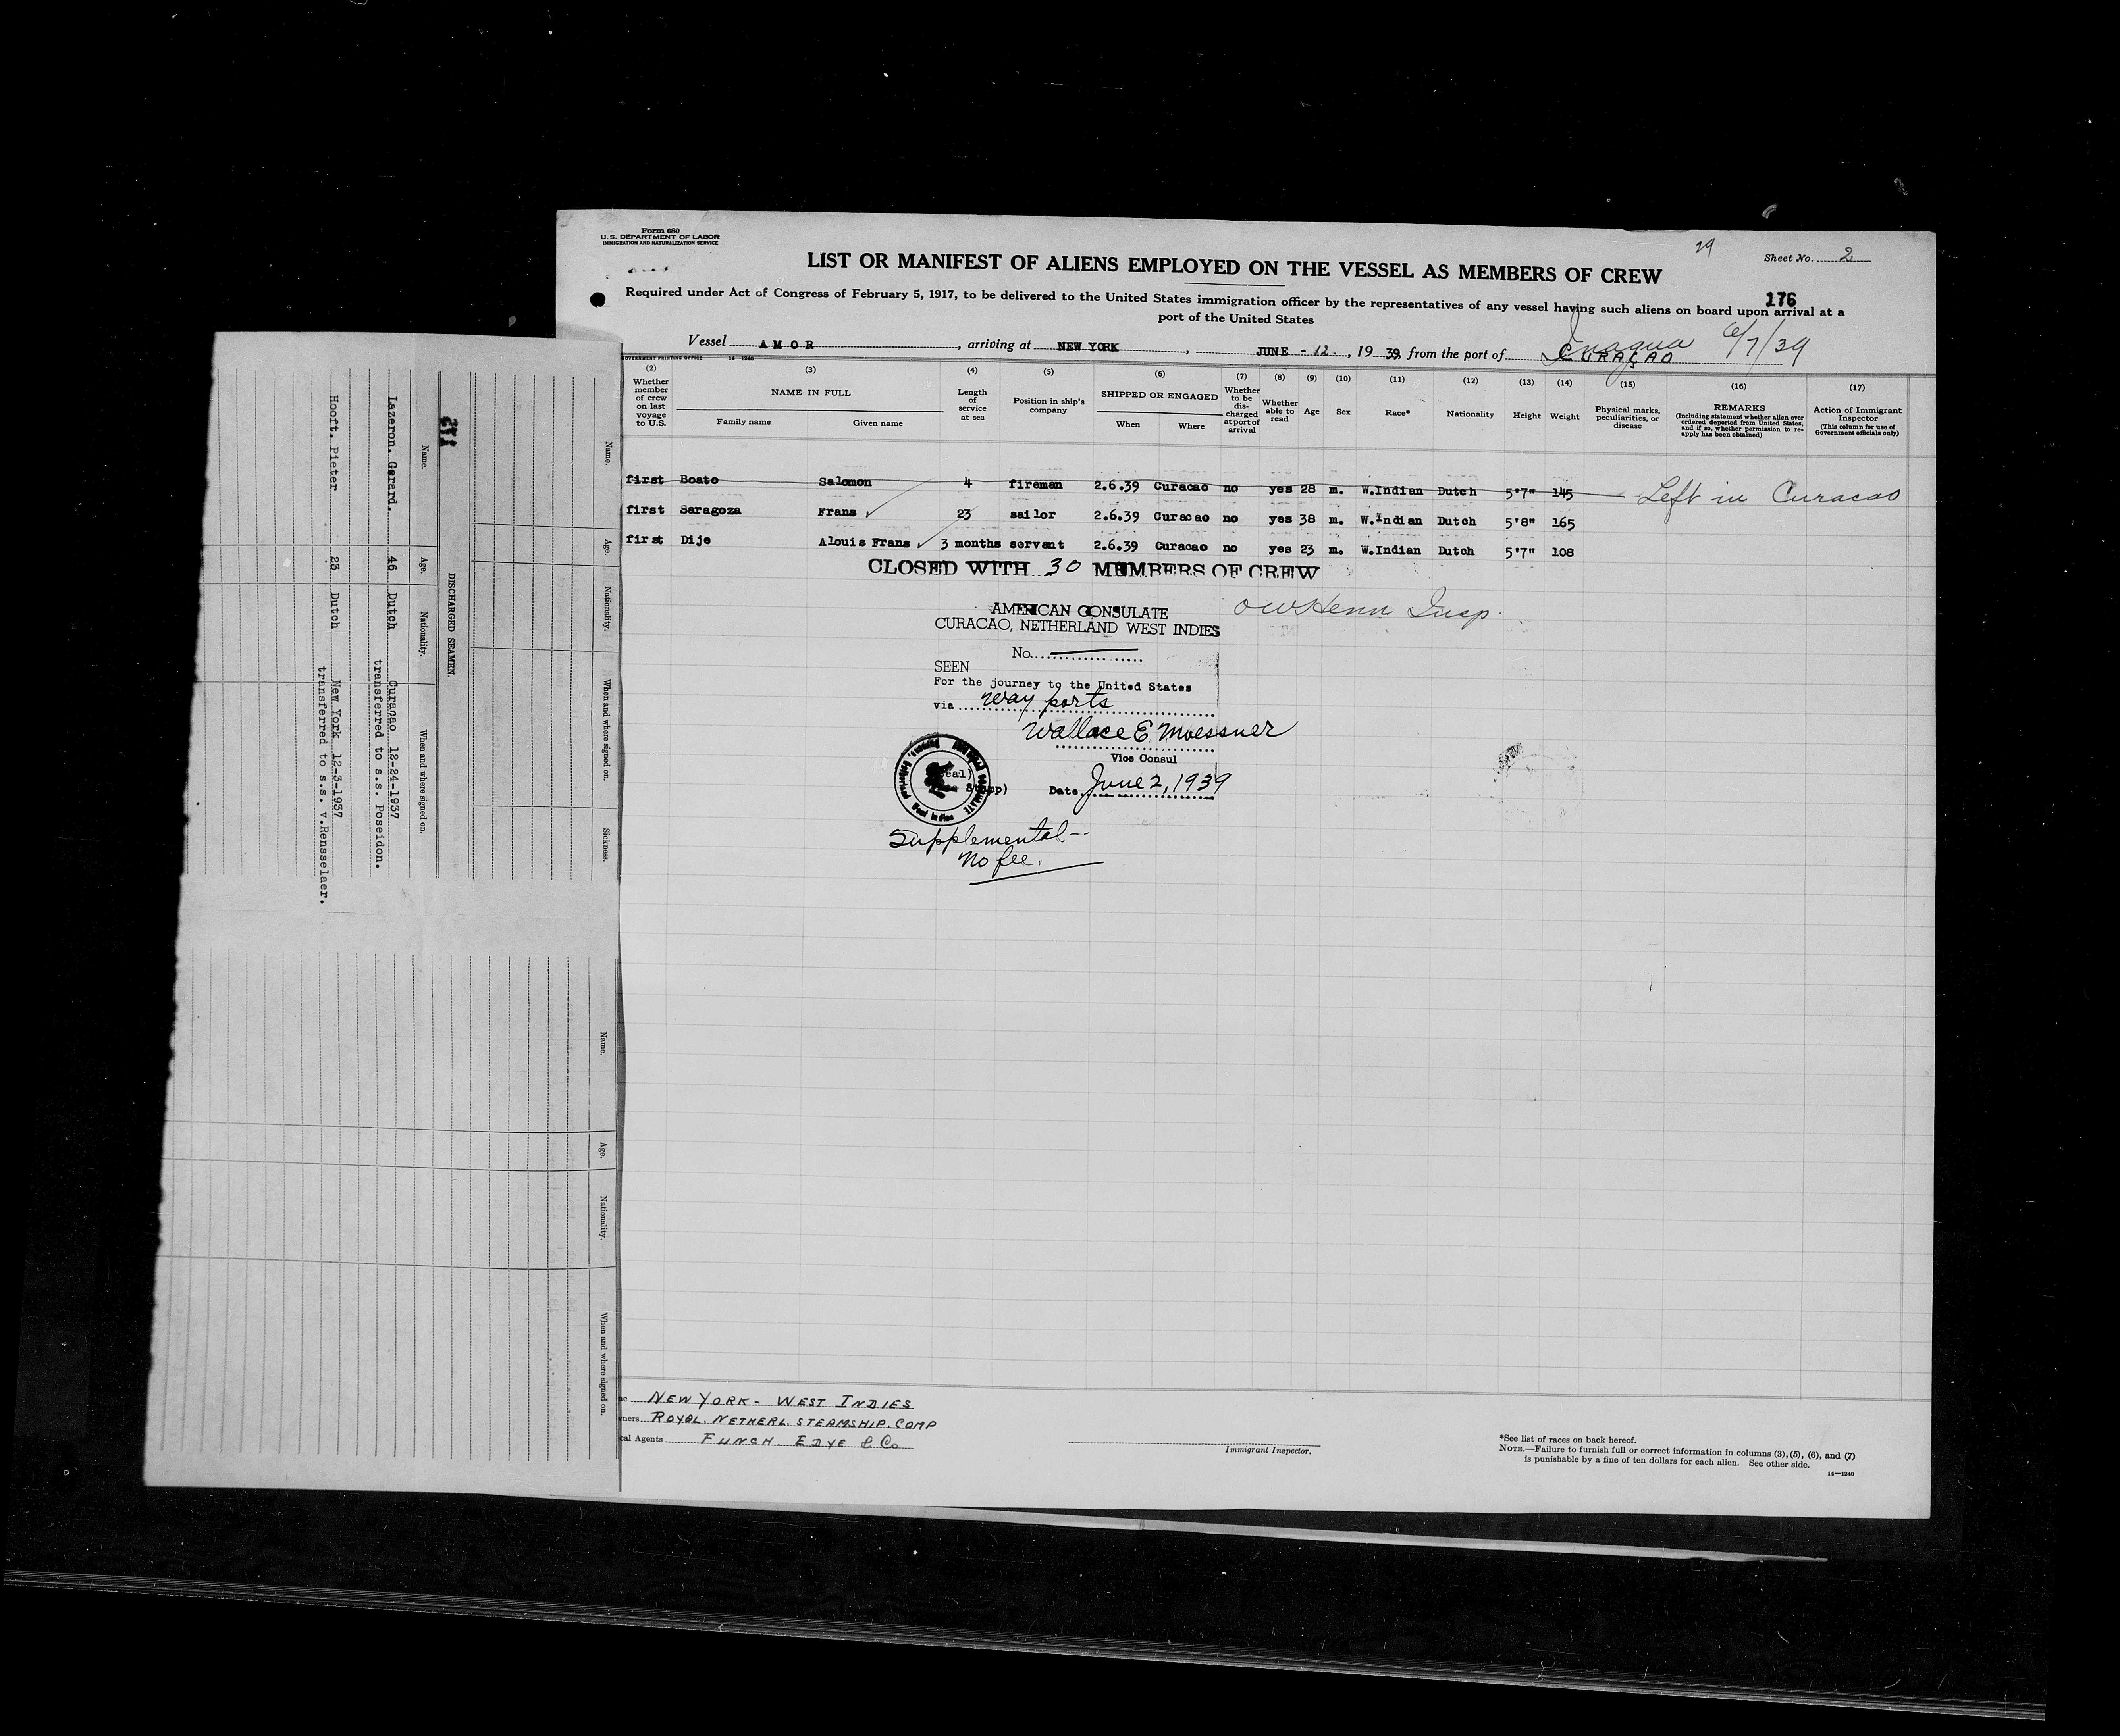 Form 680
U. S. DEPARTMENT OF LABOR
IMMIGRATION AND NATURALIZATION SERVICE
29
Sheet No. 2
LIST OR MANIFEST OF ALIENS EMPLOYED ON THE VESSEL AS MEMBERS OF CREW
176
Required under Act of Congress of February 5, 1917, to be delivered to the United States immigration officer by the representatives of any vessel having such aliens on board upon arrival at a
port of the United States
Vessel AMOR, arriving at NEW YORK, JUNE - 12., 1939, from the port of CURAÇAO Inagua 6/7/39
GOVERNMENT PRINTING OFFICE 14—1240
(2) Whether member of crew on last voyage to U.S.
(3) NAME IN FULL
Family name Given name
(4) Length of service at sea
(5) Position in ship's company
(6) SHIPPED OR ENGAGED
When Where
(7) Whether to be discharged at port of arrival
(8) Whether able to read
(9) Age
(10) Sex
(11) Race*
(12) Nationality
(13) Height
(14) Weight
(15) Physical marks, peculiarities, or disease
(16) REMARKS
(Including statement whether alien ever ordered deported from United States, and if so, whether permission to reapply has been obtained)
(17) Action of Immigrant Inspector
(This column for use of Government officials only)
first Boato Salomon 4 fireman 2.6.39 Curacao no yes 28 m. W.Indian Dutch 5'7" 145 Left in Curacao
first Saragoza Frans 23 sailor 2.6.39 Curacao no yes 38 m. W.Indian Dutch 5'8" 165
first Dije Alouis Frans 3 months servant 2.6.39 Curacao no yes 23 m. W.Indian Dutch 5'7" 108
CLOSED WITH 30 MEMBERS OF CREW
AMERICAN CONSULATE
CURACAO, NETHERLAND WEST INDIES
No.
SEEN
For the journey to the United States
via way ports
Wallace E. Moessner
Vice Consul
Date June 2, 1939
Supplemental--
No fee.
NEW YORK - WEST INDIES
ROYAL. NETHERL. STEAMSHIP. COMP
cal Agents FUNCH EDYE & Co.
Immigrant Inspector.
*See list of races on back hereof.
NOTE.—Failure to furnish full or correct information in columns (3), (5), (6), and (7)
is punishable by a fine of ten dollars for each alien. See other side.
14—1240
Name. Age. Nationality. When and where signed on. Sickness.
DISCHARGED SEAMEN.
Name. Age. Nationality. When and where signed on.
Lazeron. Gerard. 46 Dutch Curaçao 12-24-1937
transferred to s.s. Poseidon.
Hooft. Pieter 23 Dutch New York 12-3-1937
transferred to s.s. v.Rensselaer.
Name. Age. Nationality. When and where signed on.